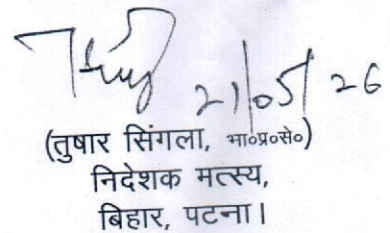 21/05/26
(तुषार सिंगला, भा०प्र०से०)
निदेशक मत्स्य,
बिहार, पटना।